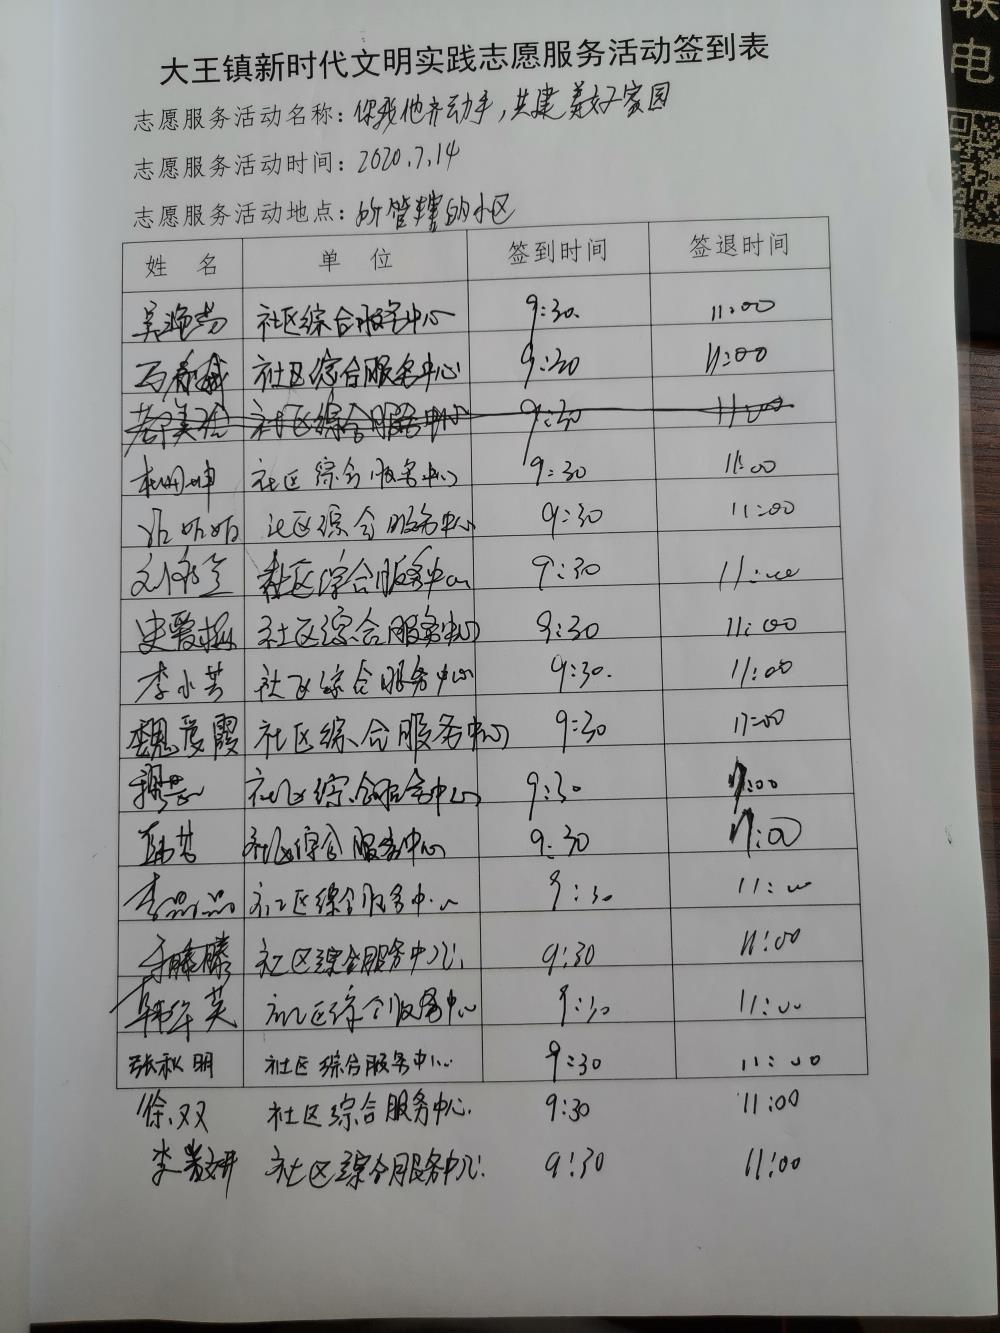 大王镇新时代文明实践志愿服务活动签到表
志愿服务活动名称：你我他齐动手，共建美好家园
志愿服务活动时间：2020.7.14
志愿服务活动地点：所管辖的小区
姓 名 单 位 签到时间 签退时间
社区综合服务中心 9:30. 11:00
社区综合服务中心 9:30 11:00
社区综合服务中心 9:30 11:00
社区综合服务中心 9:30 11:00
社区综合服务中心 9:30 11:00
社区综合服务中心 9:30 11:00
社区综合服务中心 9:30 11:00
李小芳 社区综合服务中心 9:30. 11:00
魏爱霞 社区综合服务中心 9:30 11:00
社区综合服务中心 9:30 11:00
韩芳 社区综合服务中心 9:30 11:00
李晶晶 社区综合服务中心 9:30 11:00
于滕滕 社区综合服务中心 9:30 11:00
韩华英 社区综合服务中心 9:30 11:00
张秋明 社区综合服务中心 9:30 11:00
徐双 社区综合服务中心. 9:30 11:00
李 社区综合服务中心. 9:30 11:00
联
电